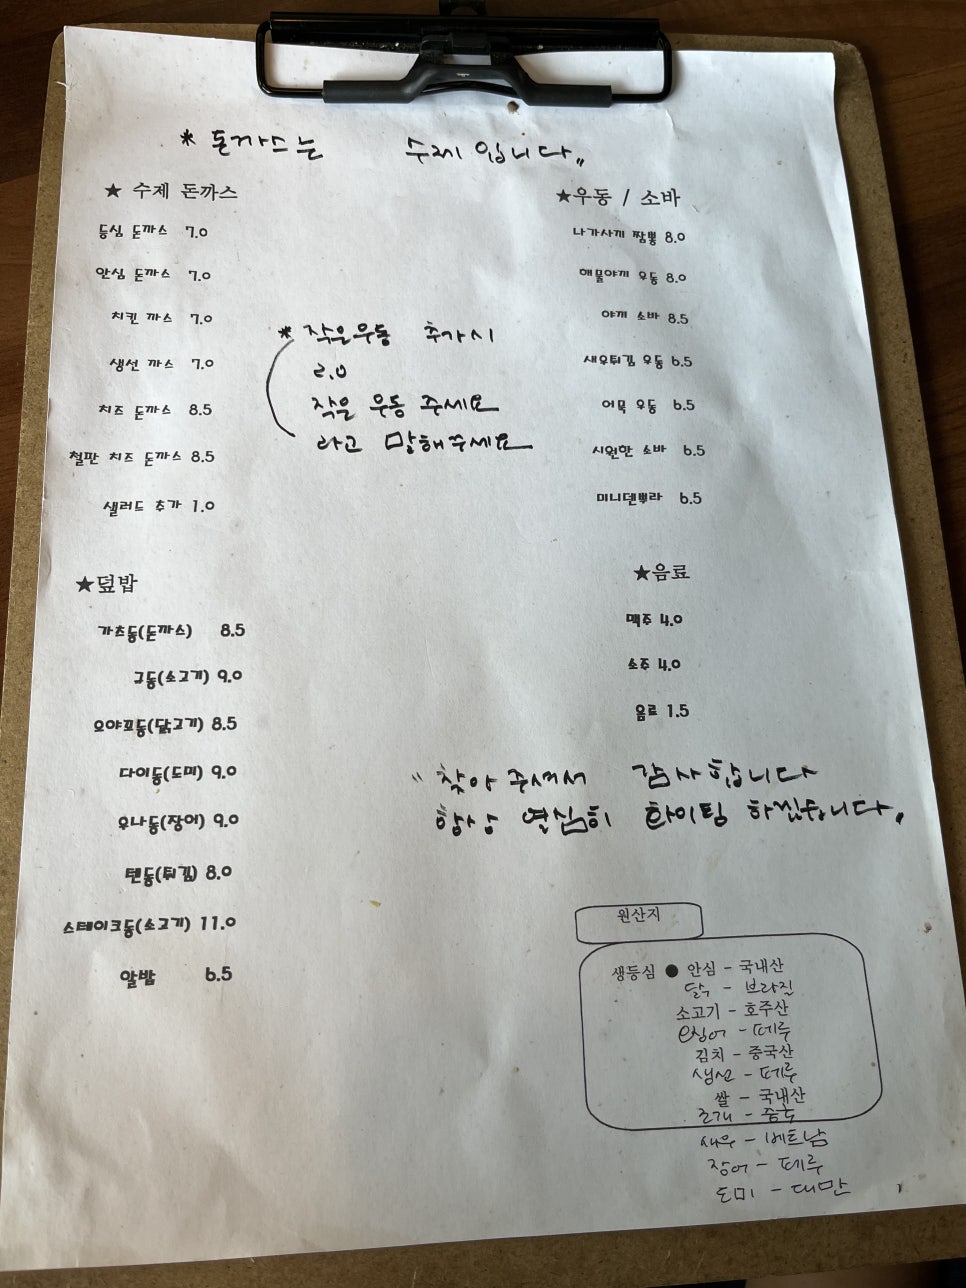 * 돈까스는 수제 입니다,,
★ 수제 돈까스
등심 돈까스 7.0
안심 돈까스 7.0
치킨 까스 7.0
생선 까스 7.0
치즈 돈까스 8.5
철판 치즈 돈까스 8.5
샐러드 추가 1.0
* 작은우동 추가시
2.0
작은 우동 주세요
라고 말해주세요
★우동 / 소바
나가사끼 짬뽕 8.0
해물야끼 우동 8.0
야끼 소바 8.5
새우튀김 우동 6.5
어묵 우동 6.5
시원한 소바 6.5
미니덴뿌라 6.5
★덮밥
가츠동(돈까스) 8.5
규동(소고기) 9.0
오야꼬동(닭고기) 8.5
다이동(도미) 9.0
우나동(장어) 9.0
텐동(튀김) 8.0
스테이크동(소고기) 11.0
알밥 6.5
★음료
맥주 4.0
소주 4.0
음료 1.5
" 찾아 주셔서 감사합니다
항상 열심히 화이팅 하겠습니다,
원산지
생등심 ● 안심 - 국내산
닭 - 브라질
소고기 - 호주산
오징어 - 페루
김치 - 중국산
생선 - 페루
쌀 - 국내산
조개 - 중국
새우 - 베트남
장어 - 페루
도미 - 대만